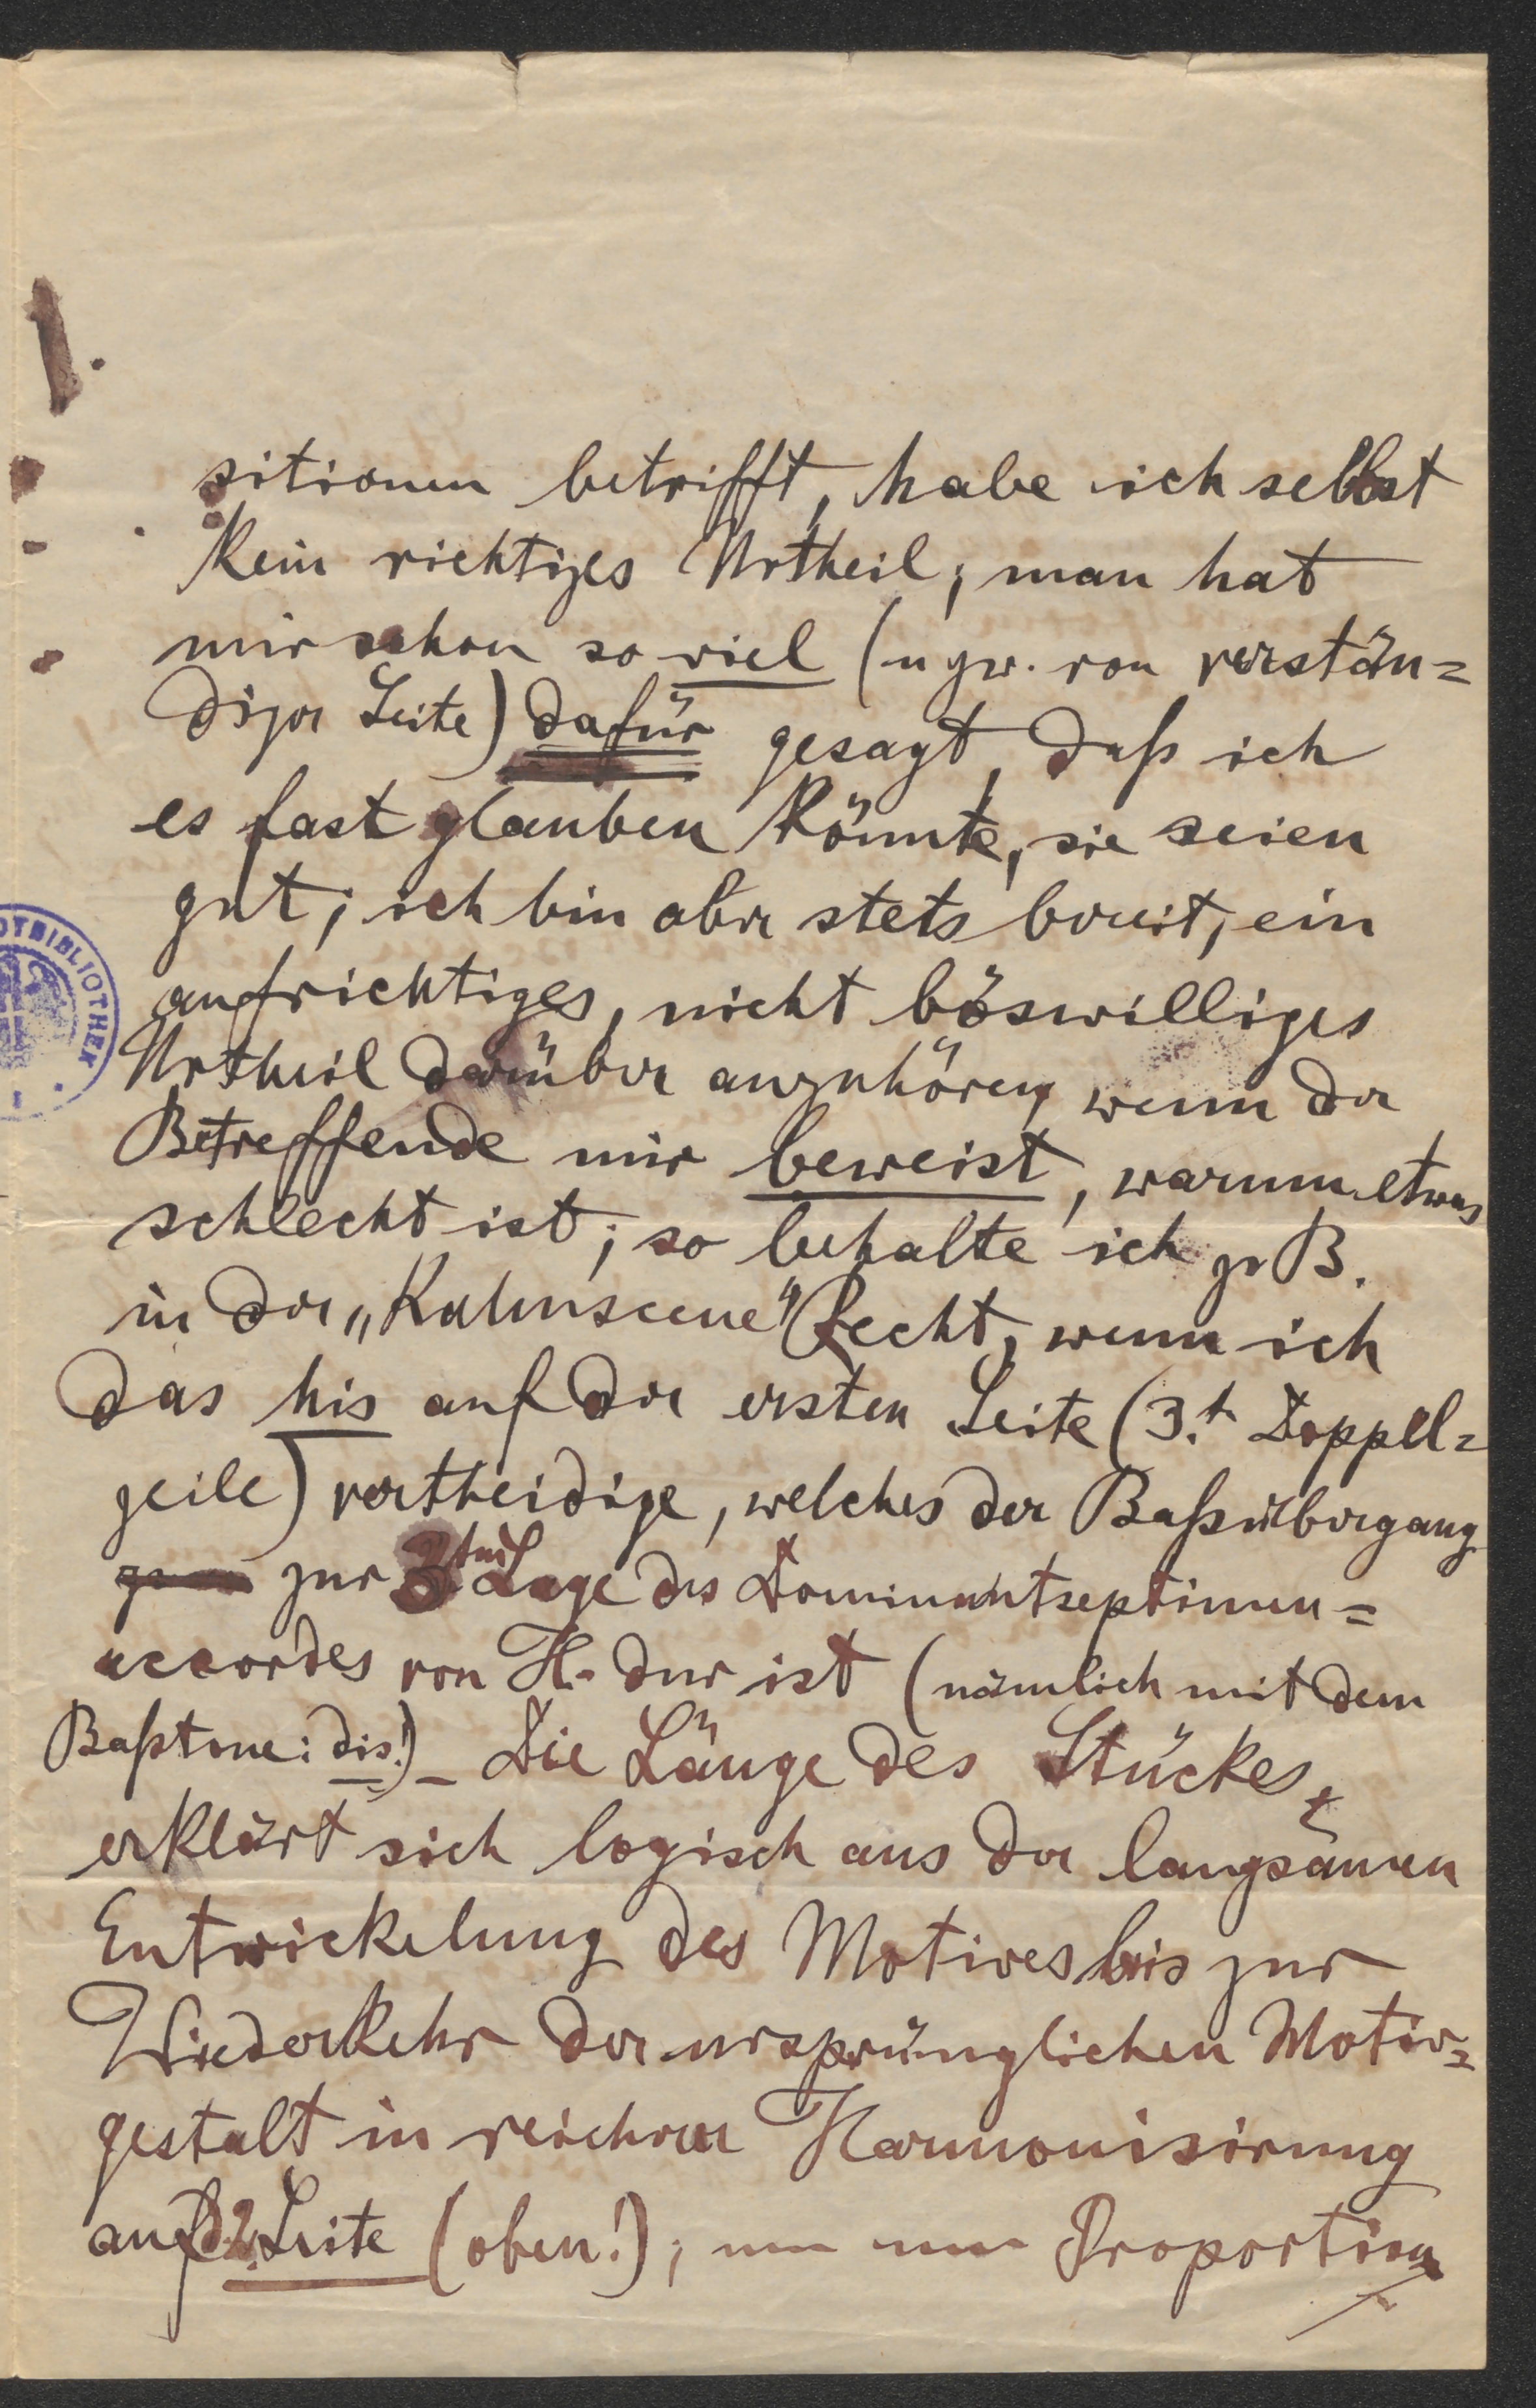 1.
sitionen betrifft, habe ich selbst
kein richtiges Urtheil; man hat
mir schon so viel (u zw. von verstän=
diger Seite) dafür gesagt, daß ich
es fast glauben könnte, sie seien
gut; ich bin aber stets bereit, ein
aufrichtiges, nicht böswilliges
Urtheil darüber anzuhören, wenn der
Betreffende mir beweist, warum etwas
schlecht ist; so behalte ich z. B.
in der „Kahnscene“ Recht, wenn ich
das his auf der ersten Seite (3.t Doppel=
zeile) vertheidige, welches der Baßübergang
zur 3ten Lage des Dominantseptimen=
accordes von H-dur ist (nämlich mit dem
Baßtone: dis!) – Die Länge des Stückes
erklärt sich logisch aus der langsamen
Entwickelung des Motives bis zur
Wiederkehr der ursprünglichen Motiv=
gestalt in reicherer Harmonisirung
auf d. 2. Seite (oben!); um nun Proportion
OTBIBLIOTHEK